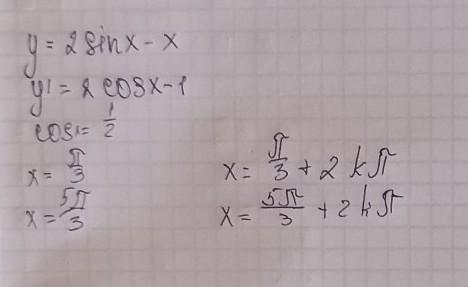 y = 2 sinx - x
y' = 2 cosx - 1
cosx = 1/2
x = π/3
x = 5π/3
x = π/3 + 2kπ
x = 5π/3 + 2kπ